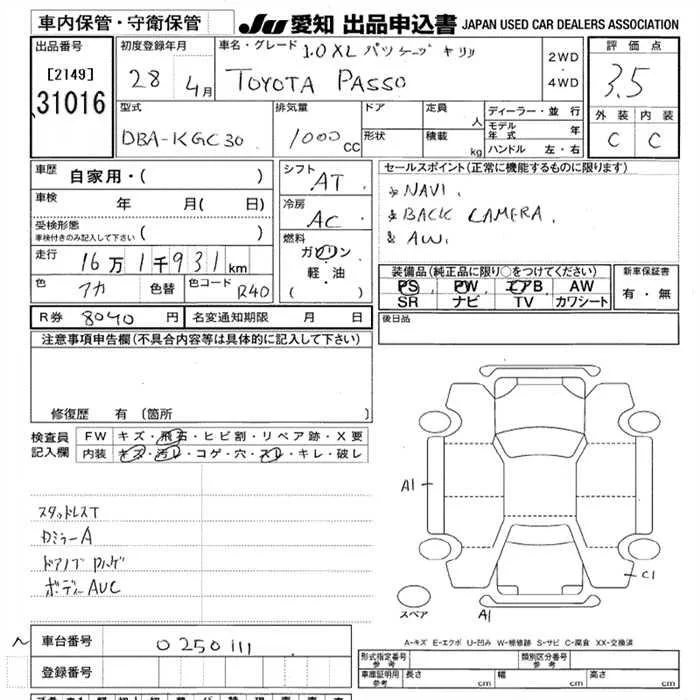 車内保管・守衛保管
JU 愛知 出品申込書 JAPAN USED CAR DEALERS ASSOCIATION
出品番号
[2149]
31016
初度登録年月
28 4月
車名・グレード 1.0XL パッケージ キリリ
TOYOTA PASSO
2WD
・
4WD
評価点
3.5
外装 内装
C C
型式
DBA-KGC30
排気量
1000 CC
ドア
形状
定員 人
積載 kg
ディーラー・並行
モデル年式 年
ハンドル 左・右
車歴
自家用・( )
車検 年 月( 日)
受検形態
車検付きのみ記入して下さい ( )
走行 16万1千931km
色 アカ 色替 色コード R40
シフト AT
冷房 AC
燃料
ガソリン
軽・油
( )
セールスポイント(正常に機能するものに限ります)
& NAVI.
& BACK CAMERA.
& AW.
装備品(純正品に限り○をつけてください)
PS PW エアB AW
SR ナビ TV カワシート
新車保証書
有・無
R券 8040 円 名変通知期限 月 日
後日品
注意事項申告欄(不具合内容等は具体的に記入して下さい)
修復歴 有 [箇所
検査員
記入欄
FW キズ・飛石・ヒビ割・リペア跡・X要
内装 キズ・汚レ・コゲ・穴・スレ・キレ・破レ
スタッドレスT
ロミラーA
ドアノブ
ボディーAUC
A1
C1
A1
スペア
A-キズ E-エクボ U-凹み W-補修跡 S-サビ C-腐食 XX-交換済
車台番号 0250111
登録番号
形式指定番号
参考
類別区分番号
参考
車庫証明用
参考
長さ cm 幅 cm 高さ cm